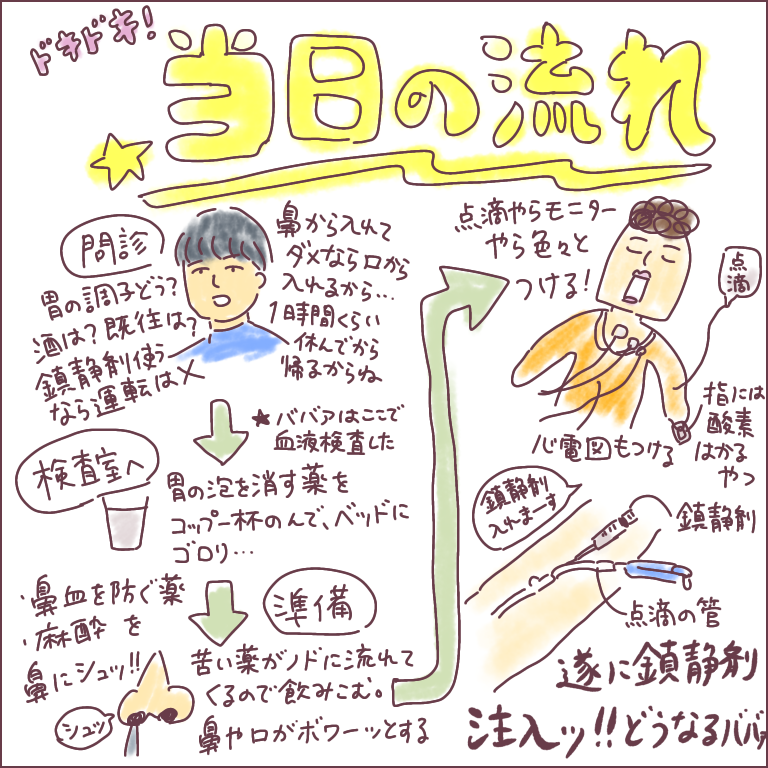 ドキドキ!
当日の流れ
問診
胃の調子どう?
酒は?既往は?
鎮静剤使う
なら運転は×
鼻から入れて
ダメなら口から
入れるから…
1時間くらい
休んでから
帰るからね
★ババアはここで
血液検査した
検査室へ
胃の泡を消す薬を
コップ一杯のんで、ベッドに
ゴロリ…
・鼻血を防ぐ薬
・麻酔 を
鼻にシュッ!!
シュッ
準備
苦い薬がノドに流れて
くるので飲みこむ。
鼻や口がボワーッとする
点滴やらモニター
やら色々と
つける!
点滴
指には
酸素
はかる
やつ
心電図もつける
鎮静剤
入れまーす
鎮静剤
点滴の管
遂に鎮静剤
注入ッ!!どうなるババァ